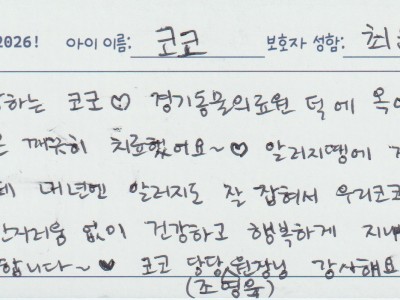 2026! 아이 이름: 코코 보호자 성함: 최
하는 코코♡ 경기동물의료원 덕에
은 깨끗히 치료했어요~♡ 알러지땡에
내년엔 알러지도 잘 잡혀서 우리코코
간지러움 없이 건강하고 행복하게 지내
합니다~♥ 코코 담당 원장님 감사해요
(조영욱)